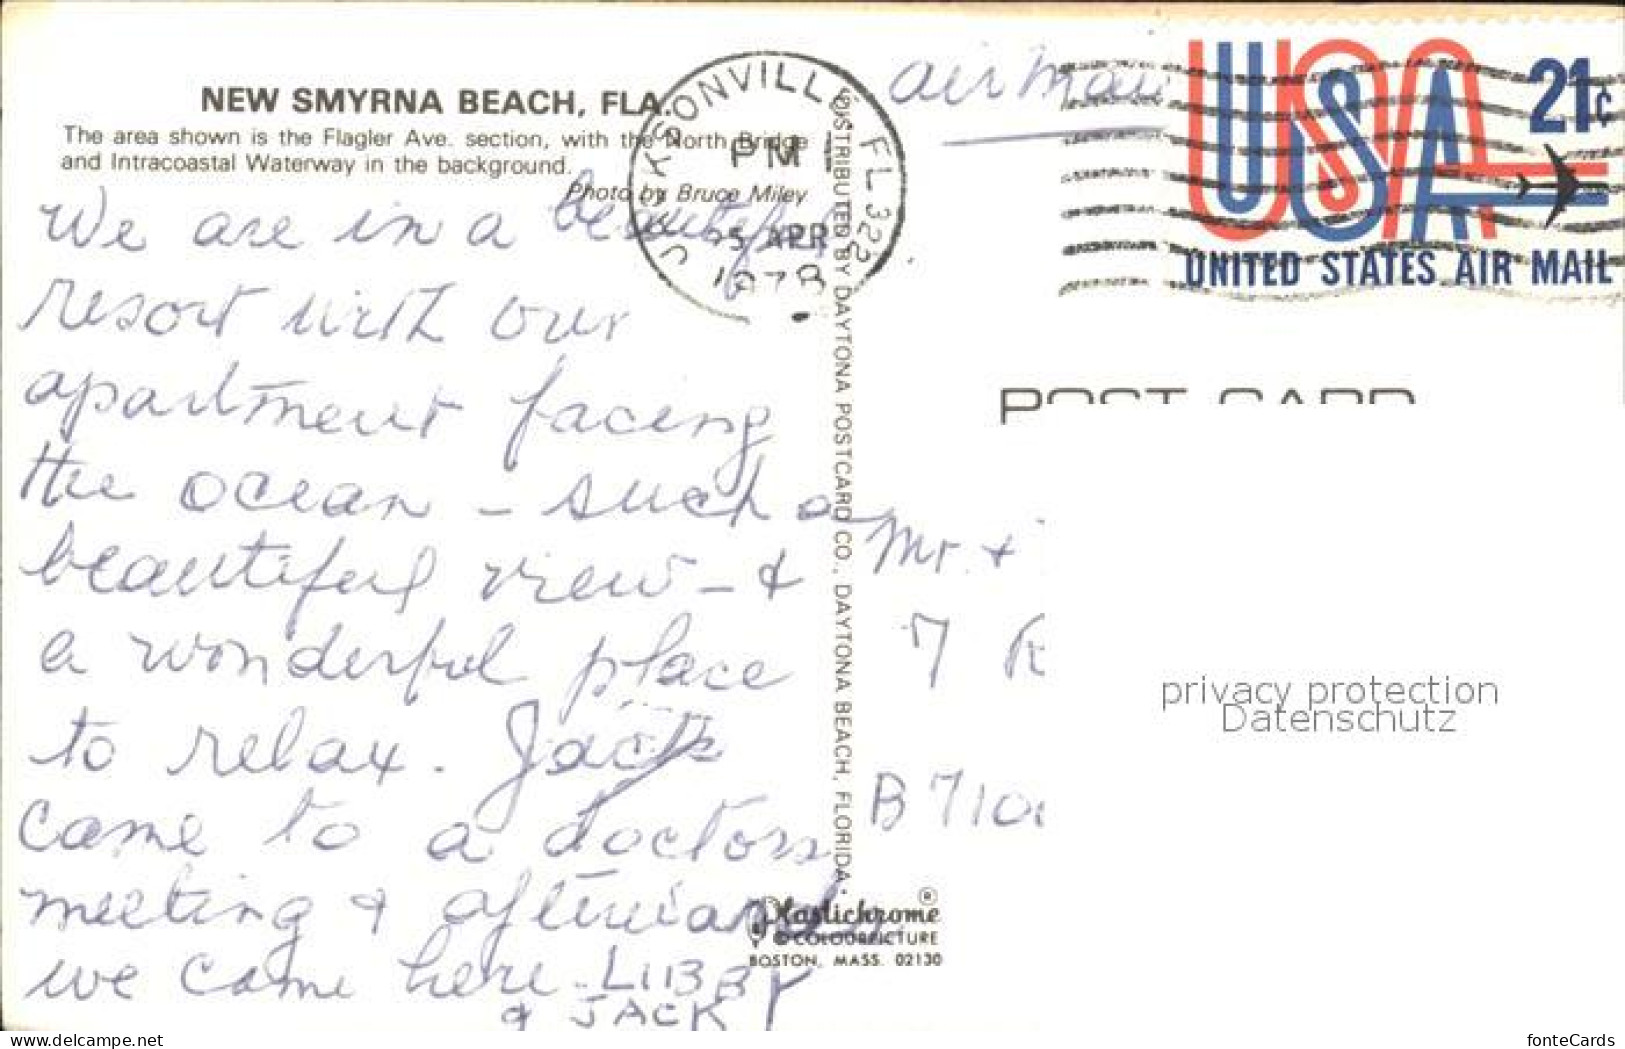 NEW SMYRNA BEACH, FLA.
The area shown is the Flagler Ave. section, with the North Bridge
and Intracoastal Waterway in the background.
Photo by Bruce Miley
We are in a beautiful
resort with our
apartment facing
the ocean - such a
beautiful view - &
a wonderful place
to relax. Jack
came to a doctors
meeting & afterwards
we came here - LIBBY
& JACK
JACKSONVILLE, FL 322
PM
APR
1978
DISTRIBUTED BY DAYTONA POSTCARD CO., DAYTONA BEACH, FLORIDA.
Plastichrome ®
© COLOURPICTURE
BOSTON, MASS. 02130
air mail
USA
21¢
UNITED STATES AIR MAIL
POST CARD
Mr. +
7
B 710
privacy protection
Datenschutz
www.delcampe.net
fonteCards